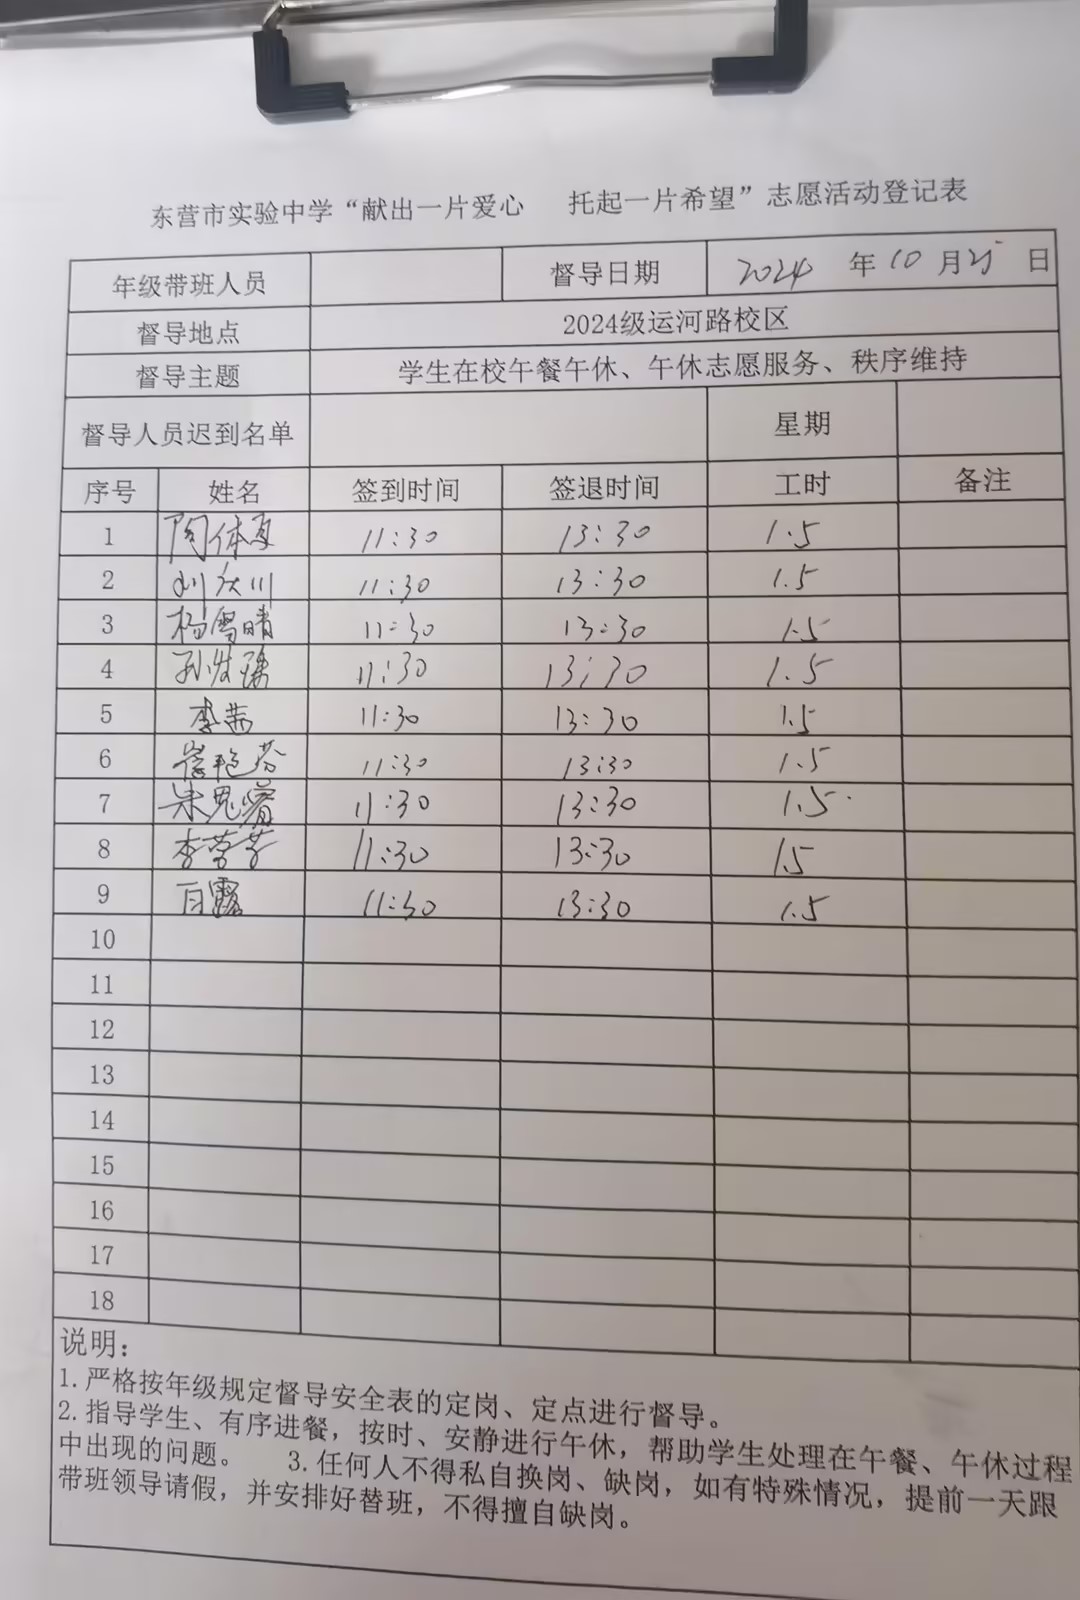 东营市实验中学“献出一片爱心 托起一片希望”志愿活动登记表
年级带班人员 督导日期 2024 年 10 月 25 日
督导地点 2024级运河路校区
督导主题 学生在校午餐午休、午休志愿服务、秩序维持
督导人员迟到名单 星期
序号 姓名 签到时间 签退时间 工时 备注
1 11:30 13:30 1.5
2 刘庆川 11:30 13:30 1.5
3 杨雪晴 11:30 13:30 1.5
4 11:30 13:30 1.5
5 李茜 11:30 13:30 1.5
6 崔艳芬 11:30 13:30 1.5
7 11:30 13:30 1.5
8 李营营 11:30 13:30 1.5
9 白露 11:30 13:30 1.5
10
11
12
13
14
15
16
17
18
说明：
1.严格按年级规定督导安全表的定岗、定点进行督导。
2.指导学生、有序进餐，按时、安静进行午休，帮助学生处理在午餐、午休过程
中出现的问题。 3.任何人不得私自换岗、缺岗，如有特殊情况，提前一天跟
带班领导请假，并安排好替班，不得擅自缺岗。